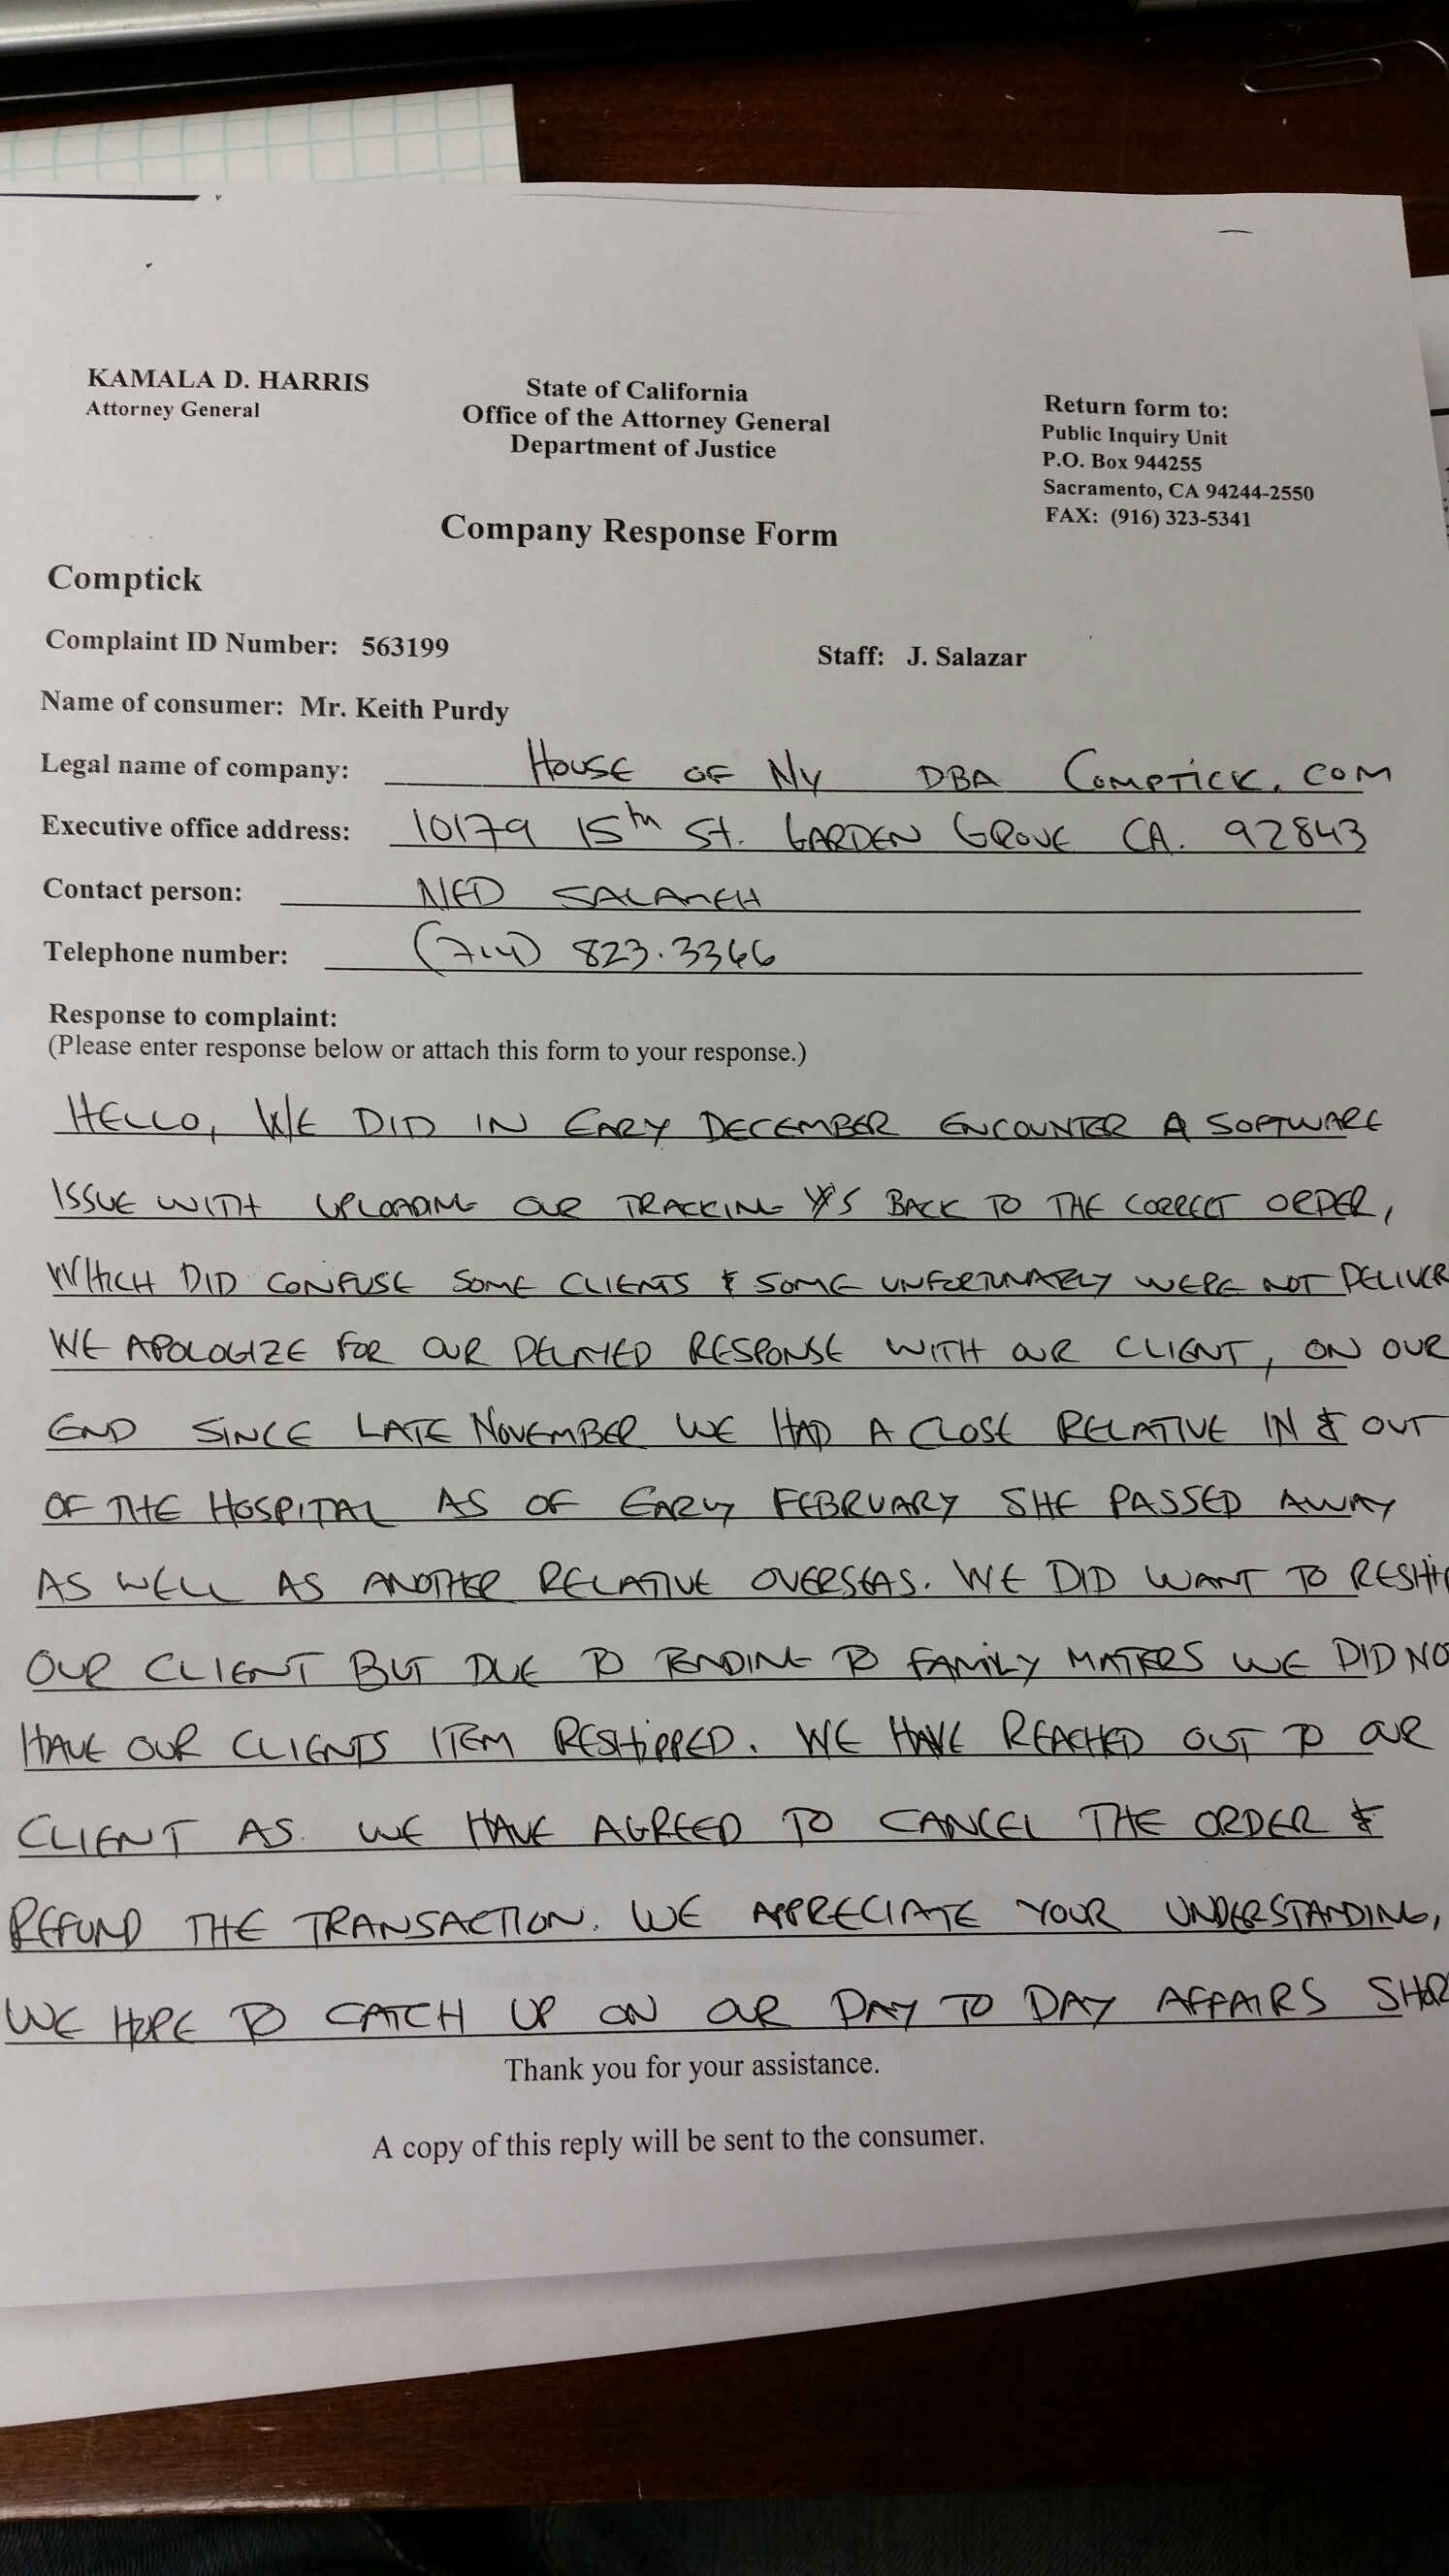 KAMALA D. HARRIS
Attorney General
State of California
Office of the Attorney General
Department of Justice
Return form to:
Public Inquiry Unit
P.O. Box 944255
Sacramento, CA 94244-2550
FAX: (916) 323-5341
Company Response Form
Comptick
Complaint ID Number: 563199
Staff: J. Salazar
Name of consumer: Mr. Keith Purdy
Legal name of company: HOUSE OF NY DBA COMPTICK.COM
Executive office address: 10179 15th St. GARDEN GROVE CA. 92843
Contact person: NED SALAMEH
Telephone number: (714) 823.3366
Response to complaint:
(Please enter response below or attach this form to your response.)
HELLO, WE DID IN EARY DECEMBER ENCOUNTER A SOFTWARE
ISSUE WITH UPLOADING OUR TRACKING #'S BACK TO THE CORRECT ORDER,
WHICH DID CONFUSE SOME CLIENTS & SOME UNFORTUNATELY WERE NOT DELIVER
WE APOLOGIZE FOR OUR DELAYED RESPONSE WITH OUR CLIENT, ON OUR
END SINCE LATE NOVEMBER WE HAD A CLOSE RELATIVE IN & OUT
OF THE HOSPITAL AS OF EARLY FEBRUARY SHE PASSED AWAY
AS WELL AS ANOTHER RELATIVE OVERSEAS. WE DID WANT TO RESHIP
OUR CLIENT BUT DUE TO TENDING TO FAMILY MATTERS WE DID NO
HAVE OUR CLIENTS ITEM RESHIPPED. WE HAVE REACHED OUT TO OUR
CLIENT AS. WE HAVE AGREED TO CANCEL THE ORDER &
REFUND THE TRANSACTION. WE APPRECIATE YOUR UNDERSTANDING,
WE HOPE TO CATCH UP ON OUR DAY TO DAY AFFAIRS SHOR
Thank you for your assistance.
A copy of this reply will be sent to the consumer.